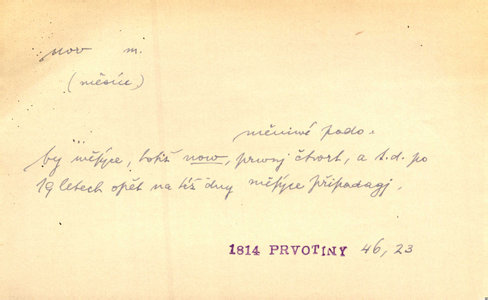 nov m.
(měsíce)
měniwé podo-
by měsýce, totiž now, prwnj čtwrt, a t.d. po
19 letech opět na týž dny měsýce připadagj.
1814 PRVOTINY 46, 23